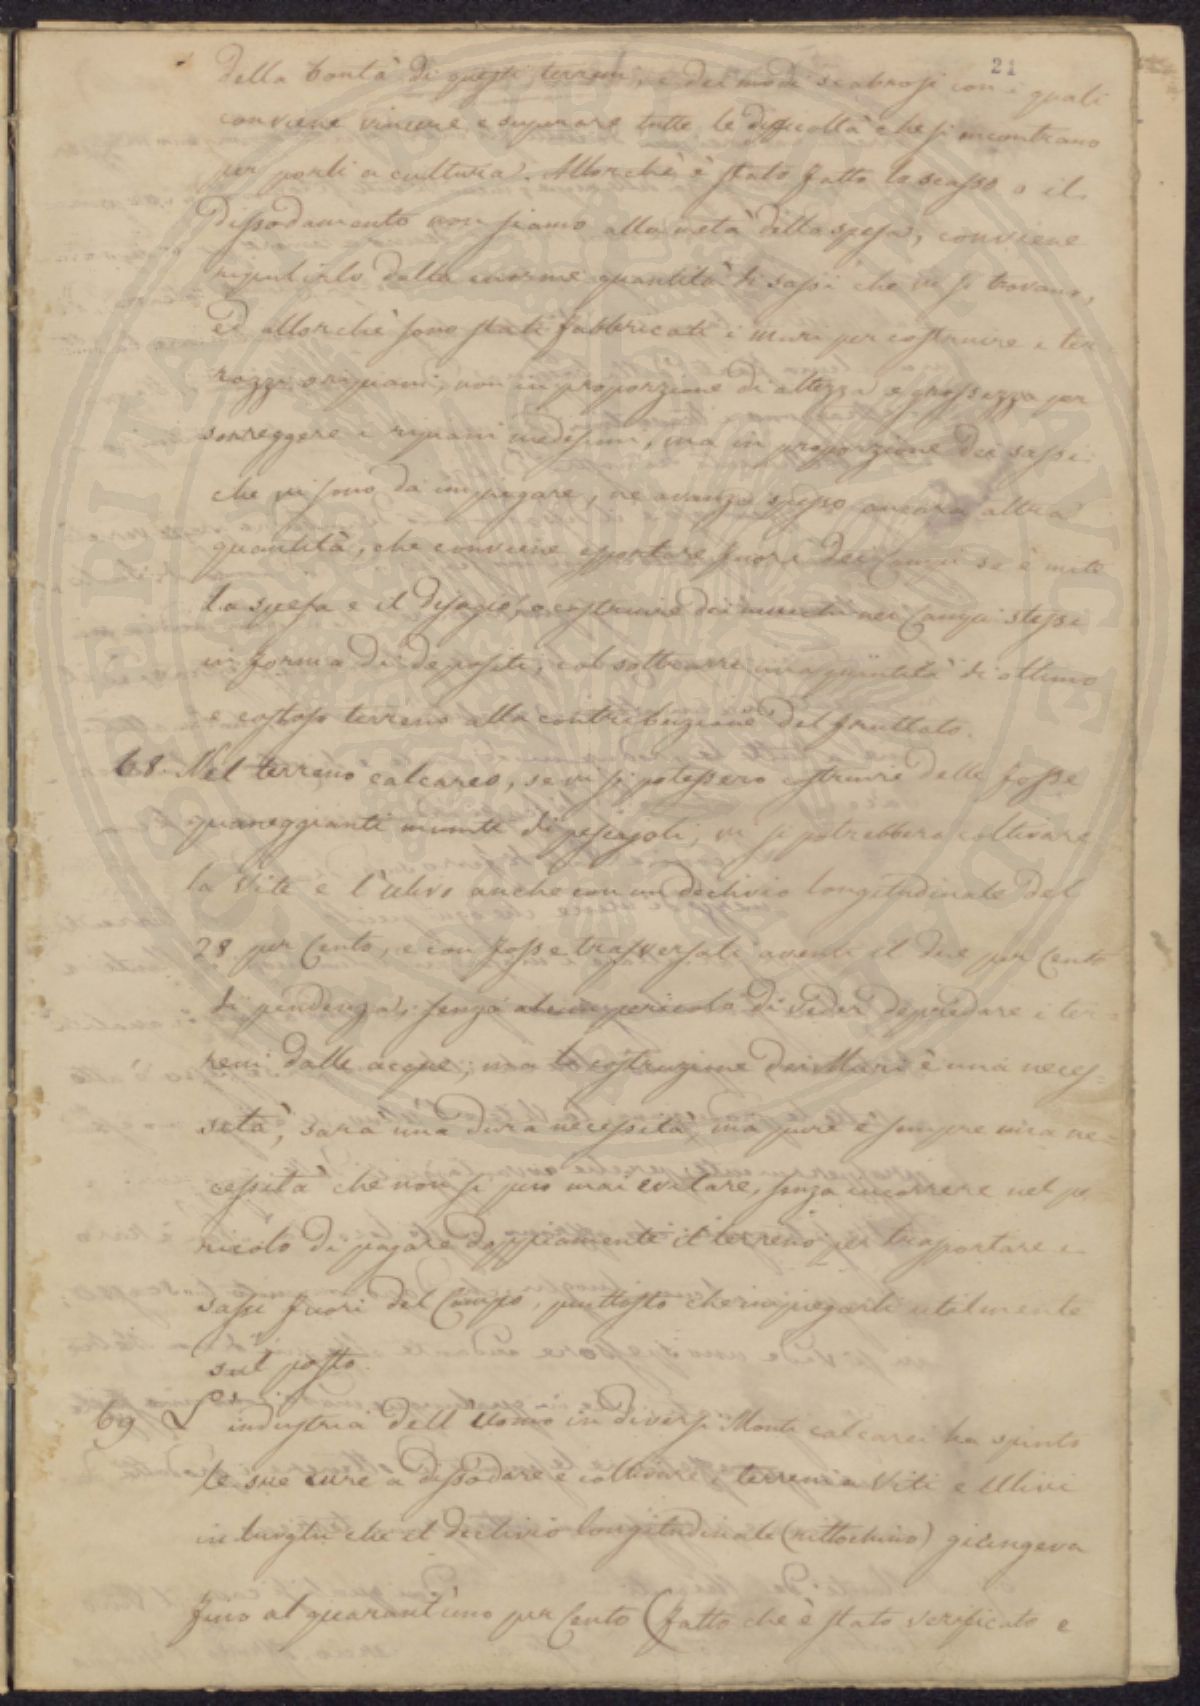 21
della bontà di questi terreni, e dei modi scabrosi con i quali
conviene vincere e superare tutte le difficoltà che si incontrano
per porli a cultura. Allorchè è stato fatto lo scasso o il
dissodamento non siamo alla metà della spesa, conviene
ripulirlo dalla enorme quantità di sassi che vi si trovano,
ed allorchè sono stati fabbricati i muri per costruire i ter-
razzi o ripiani, non in proporzione di altezza e grossezza per
sorreggere i ripiani medesimi, ma in proporzione dei sassi
che vi sono da impiegare, ne avanza spesso ancora altra
quantità, che conviene esportare fuori dei Campi se è mite
la spesa e il disagio, o costruire dei muri nei Campi stessi
in forma di depositi, col sottrarre una quantità di ottimo
e costoso terreno alla contribuzione del fruttato.
68. Nel terreno calcareo, se vi si potessero costruire delle fosse
pianeggianti munite di pescajoli, vi si potrebbero coltivare
la Vite e l'Ulivo anche con un declivio longitudinale del
28 per Cento, e con fosse trasversali aventi il due per Cento
di pendenza, senza alcun pericolo di veder depredare i ter=
reni dalle acque; ma la costruzione dei Muri è una neces=
sità, sarà una dura necessità, ma pure è sempre una ne=
cessità che non si può mai evitare, senza incorrere nel pe=
ricolo di pagare doppiamente il terreno per trasportare i
sassi fuori del Campo, piuttosto che impiegarli utilmente
sul posto.
69 L'industria dell'Uomo in diversi Monti calcarei ha spinto
le sue cure a dissodare e coltivare i terreni a Viti e Ulivi
in luoghi che il declivio longitudinale (rittochino) giungeva
fino al quarant'uno per Cento (fatto che è stato verificato e